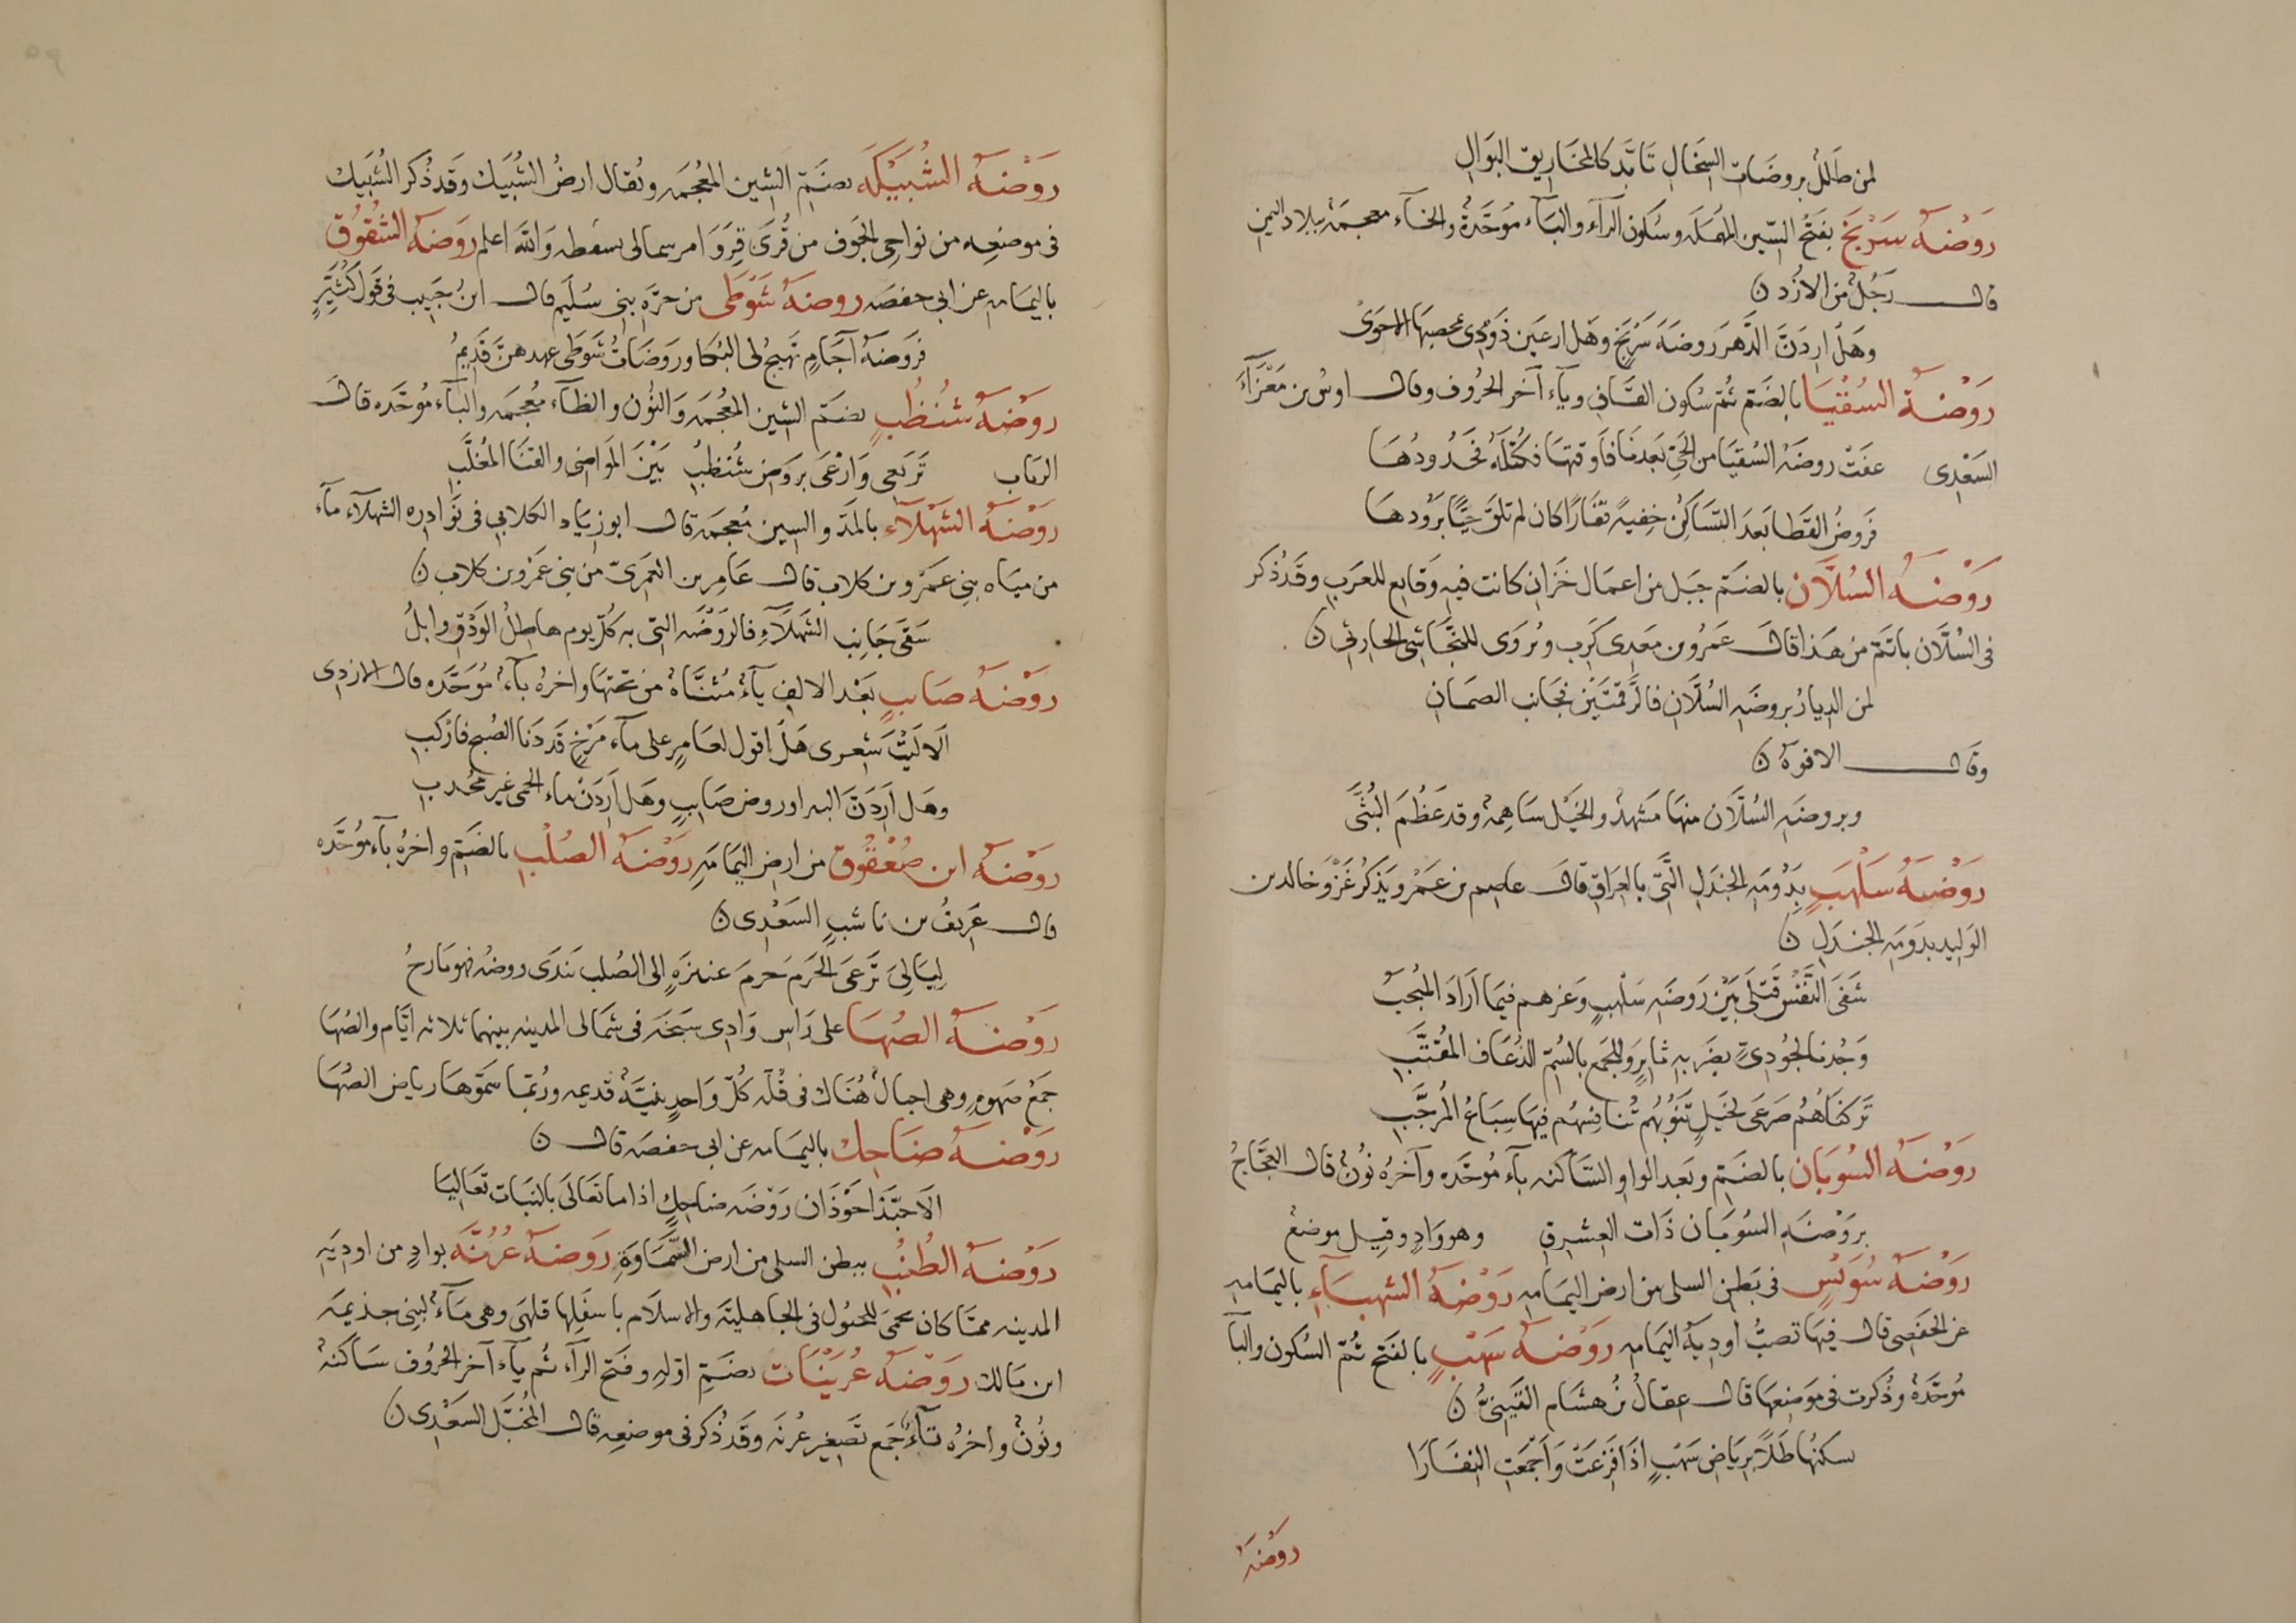 لمن طَلَلٌ بروضَات السِّخَالِ تَأبَّد كالمخَاريق البَوَالِ
رَوْضَةُ سَرْبَخَ بفَتْحِ السّين المهمَلَه وسُكون الرآء والبآء مُوحَّدةٌ والخآء معجمَة ببلاد اليمن
قال رَجُلٌ من الأزْد
وهَل ارِدَنَّ الدَّهرَ روضَةَ سَرْبَخٍ وهَل ارعَين ذَوْدِى الاحوَى
رَوْضَةُ السُقْيَا بالضَمّ ثمّ سُكون القَاف وياء آخر الحُروف وقال اوسُ بن مَغْرَآءَ
السَعْدِى عفَتْ روضَةُ السُقيَا من الحَيّ بَعدنَا فَاوقتهَا فكُتْلَةٌ فجَدُودُهَا
فَروضُ القَطا بَعدَ التسَاكُن خِفيةً قفَارًا كان لم تلقَ حَيًّا برَودهَا
رَوْضَةُ السُلَّان بالضَمّ جبَل من اعمَال خَزَاز كانت فيه وَقايع للعرَب وقَد ذُكر
فى السُلَّان باتَمّ من هَذا قال عَمْرُو بن مَعدِى كَرِب ويُروَى للنجَاشى الحارثى
لمن الديارُ بروضَه السُلَّانِ فالرَّقمَتَيْن فجَانب الصمانِ
وقال الافوَهُ
وبروضَه السُلَّان منهَا مَشهدٌ والخَيْل سَاهِمةٌ وقد عَظُمَ البُثَّى
رَوْضَةُ سَلْهَبٍ بدُومَه الجندَل التَّى بالعرَاق قال عاصم بن عَمْرو يَذكُرُ غَزْوَ خالد بن
الوَليد بدومَه الجندَلِ
شفَى النَفْسَ قَتلَى بَيْنَ رَوضَه سَلْهبٍ وَغرهم فيمَا ارَادَ المُنجِبُ
وَجُدنا لجُودىٍّ بضَربهِ ثايرٍ وللجَمع بالسُمّ الذُعَاف المقَتَّبِ
تَركنَاهُم صَرعَى لخَيلٍ تَنُوبُهُم تُنافسُهُم فيهَا سِبَاعُ المُرجَّبِ
رَوْضَةُ السُوبَان بالضَمّ وبَعد الواو السَاكنه بآء مُوحَّده وآخرهُ نُونٌ قال العَجَّاجُ
بروْضَهِ السُوبَان ذَات العِشرقِ وهو وَادٍ وقيل موضعٌ
رَوْضَةُ سُوَيْسٍ فى بَطن السلى من ارض اليمَامه رَوْضَةُ الشهبَآءِ باليمَامه
عن الحَفصِى قال فيهَا تصبُّ اوديةُ اليمَامه رَوْضَةُ سَهْبٍ بالفَتح ثمّ السُكون والبآ
مُوحَّدةٌ وذُكرت فى مَوضعهَا قال عقالُ بنُ هشَام القَينىُّ
سكنُهَا طَلًا برِيَاضِ سَهْبٍ اذَا فَزِعَتْ وَاَجمَعَتِ النفَارَا
روْضَةُ
رَوْضَةُ الشُبَيْكَه بضَمّ الشين المعُجمَه ويُقال ارضُ الشُبَيك وقَد ذُكر الشُبَيك
فى موضعِه من نواحى الجَوف من قُرَى والله اعلم رَوضَةُ الشُقُوق
باليمَامه عن ابى حفصَه روضَةُ شَوْطَى من حرّه بنى سُلَيم قال ابنُ حَبيب فى قَول كُثَيّرٍ
فَروضَةُ آجَامٍ تهيجُ لى البُكا ورَوضَاتُ شَوطَى عهدهنَّ قَديمُ
رَوْضَةُ شُنْظُبٍ بضَمّ الشين المعُجمَه وَالنُون والظآء مُعجمَه والبآء مُوحَّده قال
الرَباب تَرَبَعى وَارْعَى برَوض شُنْظُبِ بَيْنَ المَواضى والقنَا المُغلَّبِ
رَوْضَةُ الشَهْلَآء بالمَدّ والسين مُعجمَة قال ابو زيَاد الكلابى فى نَوَادِره الشهلآء مآء
من ميَاه بنى عمَرْو بن كلاب قال عَامِر بن العَمرِىّ من بنى عَمْرو بن كلاب
سَقَى جَانِبَ الشَهلَآءِ فالروْضَه التى به كُلَّ يوم هاطلُ الوَدْقِ وابلُ
رَوْضَةُ صَايبٍ بَعْد الالف يآءٌ مُثنَّاةٌ من تحتهَا واخرهُ بآءٌ مُوَحَّده قال الازدِى
اَلَا لَيْتَ شعرى هَل اقول لعَامرٍ على مآء مَرْخٍ قد دَنَا الصُبحُ فازكَبِ
وهَل اَرِدَنَّ البير او روض صَايبٍ وهَل اَرِدَنْ ماء الحمى غير مجدب
رَوْضَةُ ابن صُعْفُوق من ارض اليمَامَه رَوْضَةُ الصُلْب بالضَمّ واخرُه بآء مُوحَّده
قال عَريفُ بن نَاشبٍ السَعْدِى
لِيَالِىَ تَرْعَى الحَزمَ حَزمَ عنيزَةٍ الى الصُلب يَندَى روضُه فهو مَارحُ
رَوْضَةُ الصُهَا على رَاس وَادِى سَبَخَه فى شمَالى المدينه بينهما ثلاثه ايَّام والصُهَا
جَمْعُ صَهوةٍ وهى اجبالٌ هُنَاك فى قُلّه كُلّ وَاحدٍ بنيَّةٌ قديمه ورُبّمَا سَمّوْهَا رياض الصُهَا
رَوْضَةُ ضَاحِك باليمَامه عن ابى حفصَه قال
اَلَا حبّذَا حَوْذَان رَوْضَه ضَاحِكٍ اذا ما تَعَالَى بالنبَات تعَاليَا
رَوْضَةُ الطُنُبِ ببطن السلى من ارض السَّمَاوَةِ رَوضَةُ عُرُنَّه بوادٍ من اوديَه
المدينه ممّا كان يحمَى للخيُول فى الجَاهليّه والاسلَام باسفَلِهَا قلهَى وهى مَآءٌ لبنى جذيمَه
ابن مَالك رَوْضَةُ عُرَيْنَات بضَمّ اوّلهِ وفَتح الرآء ثم يآء آخر الحُروف سَاكنةٌ
ونُونٌ واخرُه تآءٌ جَمع تَصغير عُرنَه وقَد ذُكر فى موضعِه قال المُخبَّل السَعْدِى